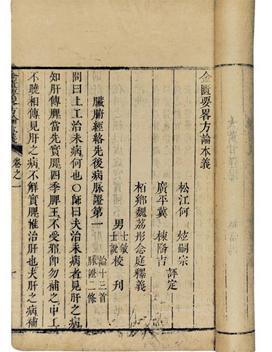 金匱要略方論本義
松江何 炫嗣宗
廣平冀 棟隆吉 評定
柏鄉魏荔彤念庭釋義
男士敏士說校刊
臟腑經絡先後病脉證第一 論十三首脉證二條
問曰上工治未病何也○師曰夫治未病者見肝之病
知肝傳脾當先實脾四季脾王不受邪即勿補之中工
不曉相傳見肝之病不解實脾惟治肝也夫肝之病補
卷之一